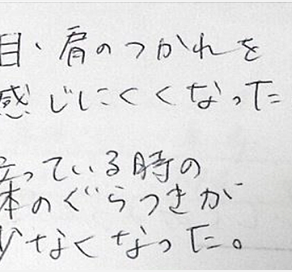 目・肩のつかれを
感じにくくなった
立っている時の
体のぐらつきが
少なくなった。